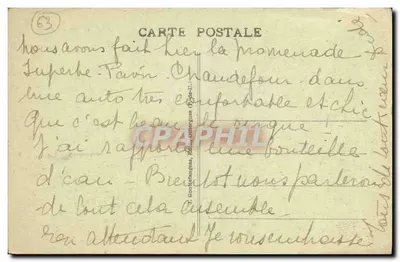 63
CARTE POSTALE
nous avons fait hier la promenade
Superbe. Pavin. Chaudefour. dans
une auto très confortable et chic
que c'est beau
J'ai rapporté une bouteille
d'eau - Bientot nous parlerons
de tout cela ensemble.
En attendant Je vous embrasse
tous de tout
CPAPHIL.com